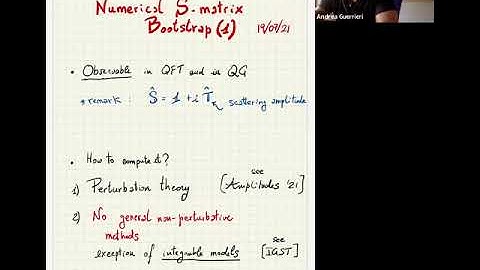 Andrea Guerrieri
Numerical S-matrix
Bootstrap (1) 19/07/21
• Observable in QFT and in QG
* remark : Ŝ = 1 + i T̂ scattering amplitude
• How to compute it?
1) Perturbation theory [see Amplitudes '21]
2) No general non-perturbative
methods
exception of integrable models [see IGST]